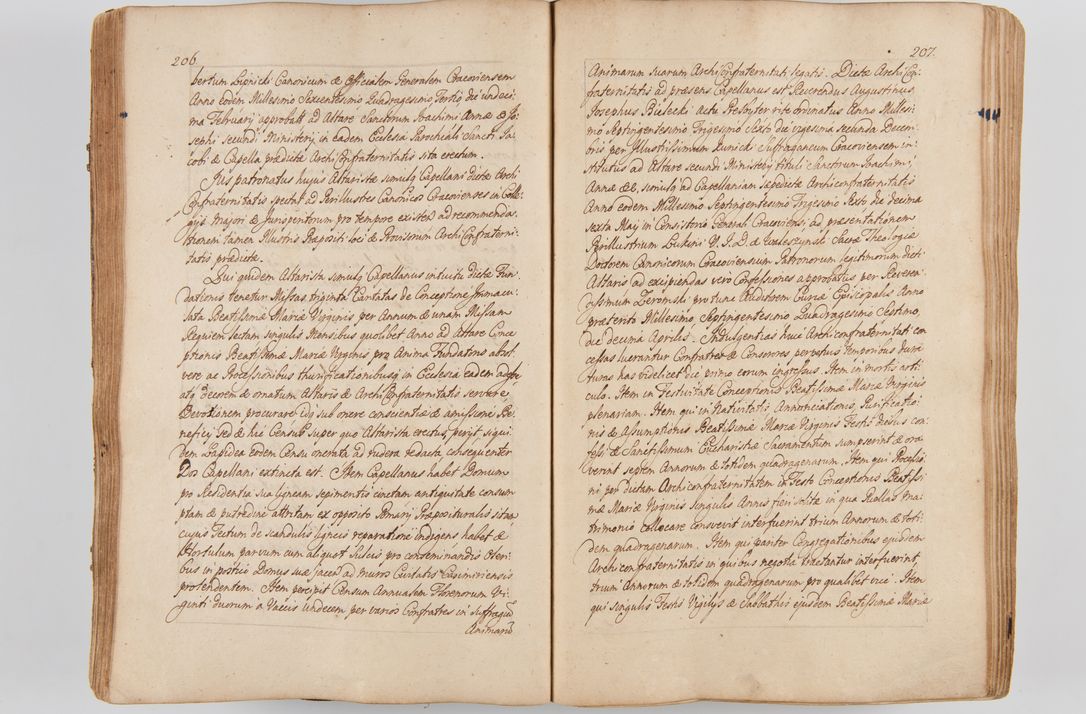 206.
bertum Lipnicki Canonicum & Officialem Generalem Cracoviensem
Anno eodem Millesimo Sexcentesimo Quadragesimo Tertio die undeci
ma Februarij approbatt ad Altare Sanctorum Joachimi Annæ & Jo
sephi secundi Ministerij in eadem Ecclesia Parochiali Sancti Ja
cobi & Capella prædictæ ArchiConfraternitatis sita erectum.
Jus patronatus hujus Altaristæ simulq Capellani dictæ Archi
Confraternitatis spectat ad Perillustres Canonicos Cracovienses in Colle
gijs Majori & Jurisperitorum pro tempore existen ad recommenda
tionem tamen Illustris Præpositi loci & Provisorum ArchiConfraterni
tatis prædictæ.
Qui quidem Altarista simulq Capellanus intuitu dictæ Fun
dationis tenetur Missas triginta Cantatas de Conceptione Immacu
lata Beatissimæ Mariæ Virginis per Annum & unam Missam
Requiem lectam singulis Mensibus quolibet Anno ad Altare Conce
ptionis Beatissimæ Mariæ Virginis pro Anima Fundatoris absol
vere ac Processionibus thurificationibusq in Ecclesia eadem
atq decorem & ornatum Altaris & ArchiConfraternitatis servare
Devotionem procurare idq sub onere conscientiæ & amissione Be
neficij sed & hic Census super quo Altarista erectus, perijt siqui
dem Lapidea eodem Censu onerata ad rudera redacta consequenter
Dos Capellani extincta est. Item Capellanus habet Domum
pro Residentia sua ligneam sepimentis cinctam antiquitate consum
ptam & putredine attritam ex opposito Pomarij Præpositturalis sitam
cujus Tectum de scandulis ligneis reparatione indigens habet &
Hortulum parvum cum aliquot Sulcis pro conseminandis Oleri
bus in postico Domus suæ jacen ad muros Civitatis Casimiriensis
protendentem. Item percipit Censum Annualem Florenorum Vi
ginti duorum a Vaccis Undecem per varios Confratres in suffragiũ
Animarũ
207.
Animarum suarum ArchiConfraternitati legatis. Dictæ ArchiCon
fraternitatis ad præsens Capellanus est Reverendus Augustinus
Josephus Bielecki actu Presbyter rite ordinatus Anno Millesi
mo Septingentesimo Trigesimo Sexto die vigesima Secunda Decem
bris per Illustrissimum Kunicki Suffraganeum Cracoviensem in
stitutus ad Altare secundi Ministerij tituli Sanctorum Joachimi,
Annæ &c. simulq ad Capellaniam sæpedictæ Archiconfraternitatis
Anno eodem Millesimo Septingentesimo Trigesimo Sexto die decima
sexta Maij in Consistorio Generali Cracoviensi, ad præsentationem
Perillustrium Lukini V.J.D. & Waleszynski Sacræ Theologiæ
Doctorem Canonicorum Cracoviensium Patronorum legitimorum dicti
Altaris ad excipiendas vero Confessiones approbatus per Reveren
dissimum Zeromski pro tunc Auditorem Curiæ Episcopalis Anno
præterito Millesimo Septingentesimo Quadragesimo Septimo,
die decima Aprilis. Indulgentias huic Archiconfraternitati con
cessas lucrantur Confratres & Consorores perpetuis temporibus dura
turas has videlicet die primo eorum ingressus. Item in mortis arti
culo. Item in Festivitate Conceptionis Beatissimæ Mariæ Virginis
plenariam. Item qui in Nativitatis Annunciationis, Purificatio
nis & Assumptionis Beatissimæ Mariæ Virginis Festis Diebus con
fessi & Sanctissimum Eucharistiæ Sacramentum sumpserint & ora
verint septem Annorum & totidem quadragenarum. Item qui Processio
ni per dictam Archiconfraternitatem in Festo Conceptionis Beatissi
mæ Mariæ Virginis Singulis Annis fieri solitæ in qua Puellas Ma
trimonio collocare consuevit interfuerint trium Annorum & toti
dem quadragenarum. Item qui pariter Congregationibus ejusdem
Archiconfraternitatis in quibus negotia tractantur interfuerint
trium Annorum & totidem quadragenarum pro qualibet vice. Item
qui singulis Festis Vigilijs & Sabbathis ejusdem Beatissimæ Mariæ